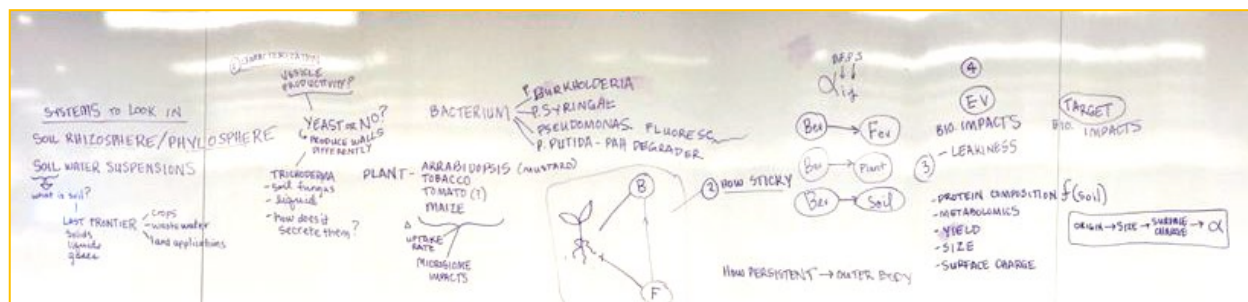 SYSTEMS TO LOOK IN
SOIL RHIZOSPHERE/PHYLOSPHERE
SOIL WATER SUSPENSIONS
what is soil?
LAST FRONTIER
solids
liquids
gases
- crops
- waste water
land applications
VESICLE
PRODUCTIVITY?
YEAST OR NO?
PRODUCE WALLS
DIFFERENTLY
TRICHODERMA
- soil fungus
- liquid
- how does it
secrete them?
BACTERIUM
BURKHOLDERIA
P. SYRINGAE
PSEUDOMONAS FLUORESC
P. PUTIDA - PAH DEGRADER
PLANT - ARRABIDOPSIS (MUSTARD)
TOBACCO
TOMATO (?)
MAIZE
UPTAKE
RATE
MICROBIOME
IMPACTS
B
F
② HOW STICKY
B,F,P,S
αij
Bev → Fev
Bev → Plant
Bev → Soil
HOW PERSISTENT → OUTER BODY
④
EV
BIO. IMPACTS
③ - LEAKINESS
- PROTEIN COMPOSITION f(soil)
- METABOLOMICS
- YIELD
- SIZE
- SURFACE CHARGE
TARGET
BIO. IMPACTS
ORIGIN → SIZE → SURFACE CHARGE → α